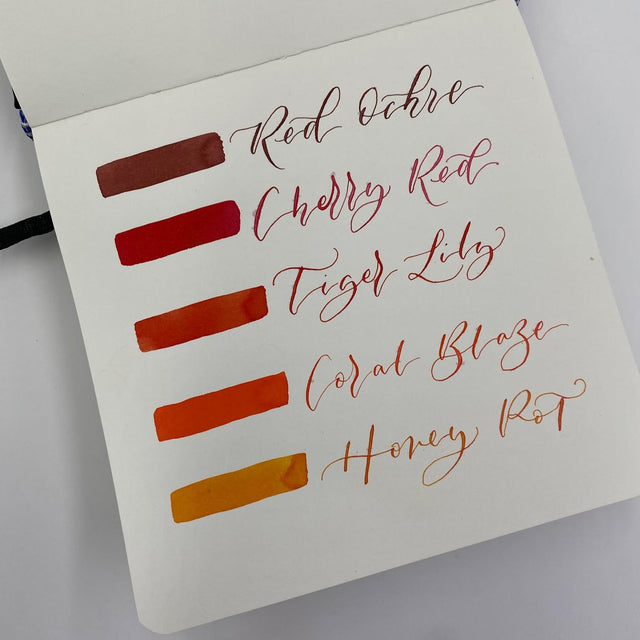 Red Ochre
Cherry Red
Tiger Lily
Coral Blaze
Honey Rot